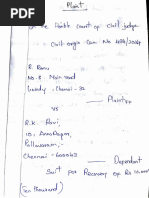 Plaint
In the Hon'ble Court of Civil Judge
Civil Origin Case No
R. Ramu
No - 8. Main road
Guindy - Chennai - 32
Plaintiff
VS
R.K. Ravi,
10.
Pallavaram,
Chennai - 600043
Dependant
Suit for Recovery of Rs 10,000/-
(Ten Thousand)